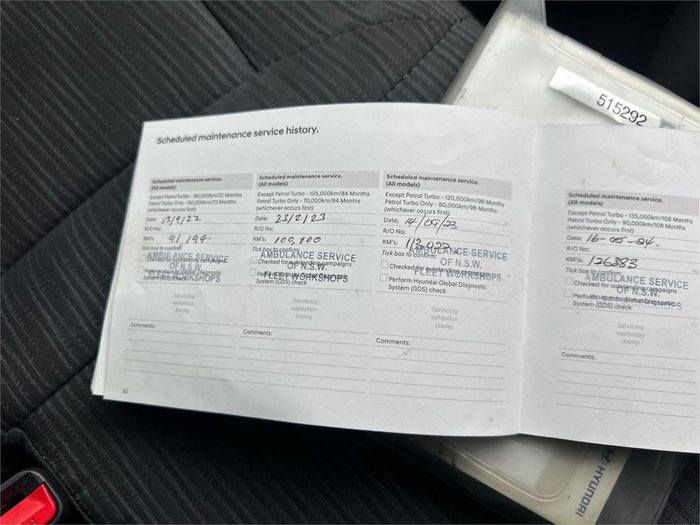 515292
Scheduled maintenance service history.
Scheduled maintenance service.
(All models)
Except Petrol Turbo - 90,000km/72 Months
Petrol Turbo Only - 60,000km/72 Months
(whichever occurs first)
Date: 13/9/22
R/O No:
KM's: 91,194
Tick box to confirm
AMBULANCE SERVICE
OF N.S.W.
FLEET WORKSHOPS
Checked for outstanding campaigns
Perform Hyundai Global Diagnostic
System (GDS) check
Servicing
validation
stamp
Comments:
Scheduled maintenance service.
(All models)
Except Petrol Turbo - 105,000km/84 Months
Petrol Turbo Only - 70,000km/84 Months
(whichever occurs first)
Date: 23/2/23
R/O No:
KM's: 100,100
Tick box to confirm
AMBULANCE SERVICE
OF N.S.W.
FLEET WORKSHOPS
Checked for outstanding campaigns
Perform Hyundai Global Diagnostic
System (GDS) check
Servicing
validation
stamp
Comments:
Scheduled maintenance service.
(All models)
Except Petrol Turbo - 120,000km/96 Months
Petrol Turbo Only - 80,000km/96 Months
(whichever occurs first)
Date: 14/09/23
R/O No:
KM's: 113,022
Tick box to confirm
AMBULANCE SERVICE
OF N.S.W.
FLEET WORKSHOPS
Checked for outstanding campaigns
Perform Hyundai Global Diagnostic
System (GDS) check
Servicing
validation
stamp
Comments:
Scheduled maintenance service.
(All models)
Except Petrol Turbo - 135,000km/108 Months
Petrol Turbo Only - 90,000km/108 Months
(whichever occurs first)
Date: 16-05-24.
R/O No:
KM's: 126383
Tick box to confirm
AMBULANCE SERVICE
OF N.S.W.
FLEET WORKSHOPS
Checked for outstanding campaigns
Perform Hyundai Global Diagnostic
System (GDS) check
Servicing
validation
stamp
Comments:
33
HYUNDAI